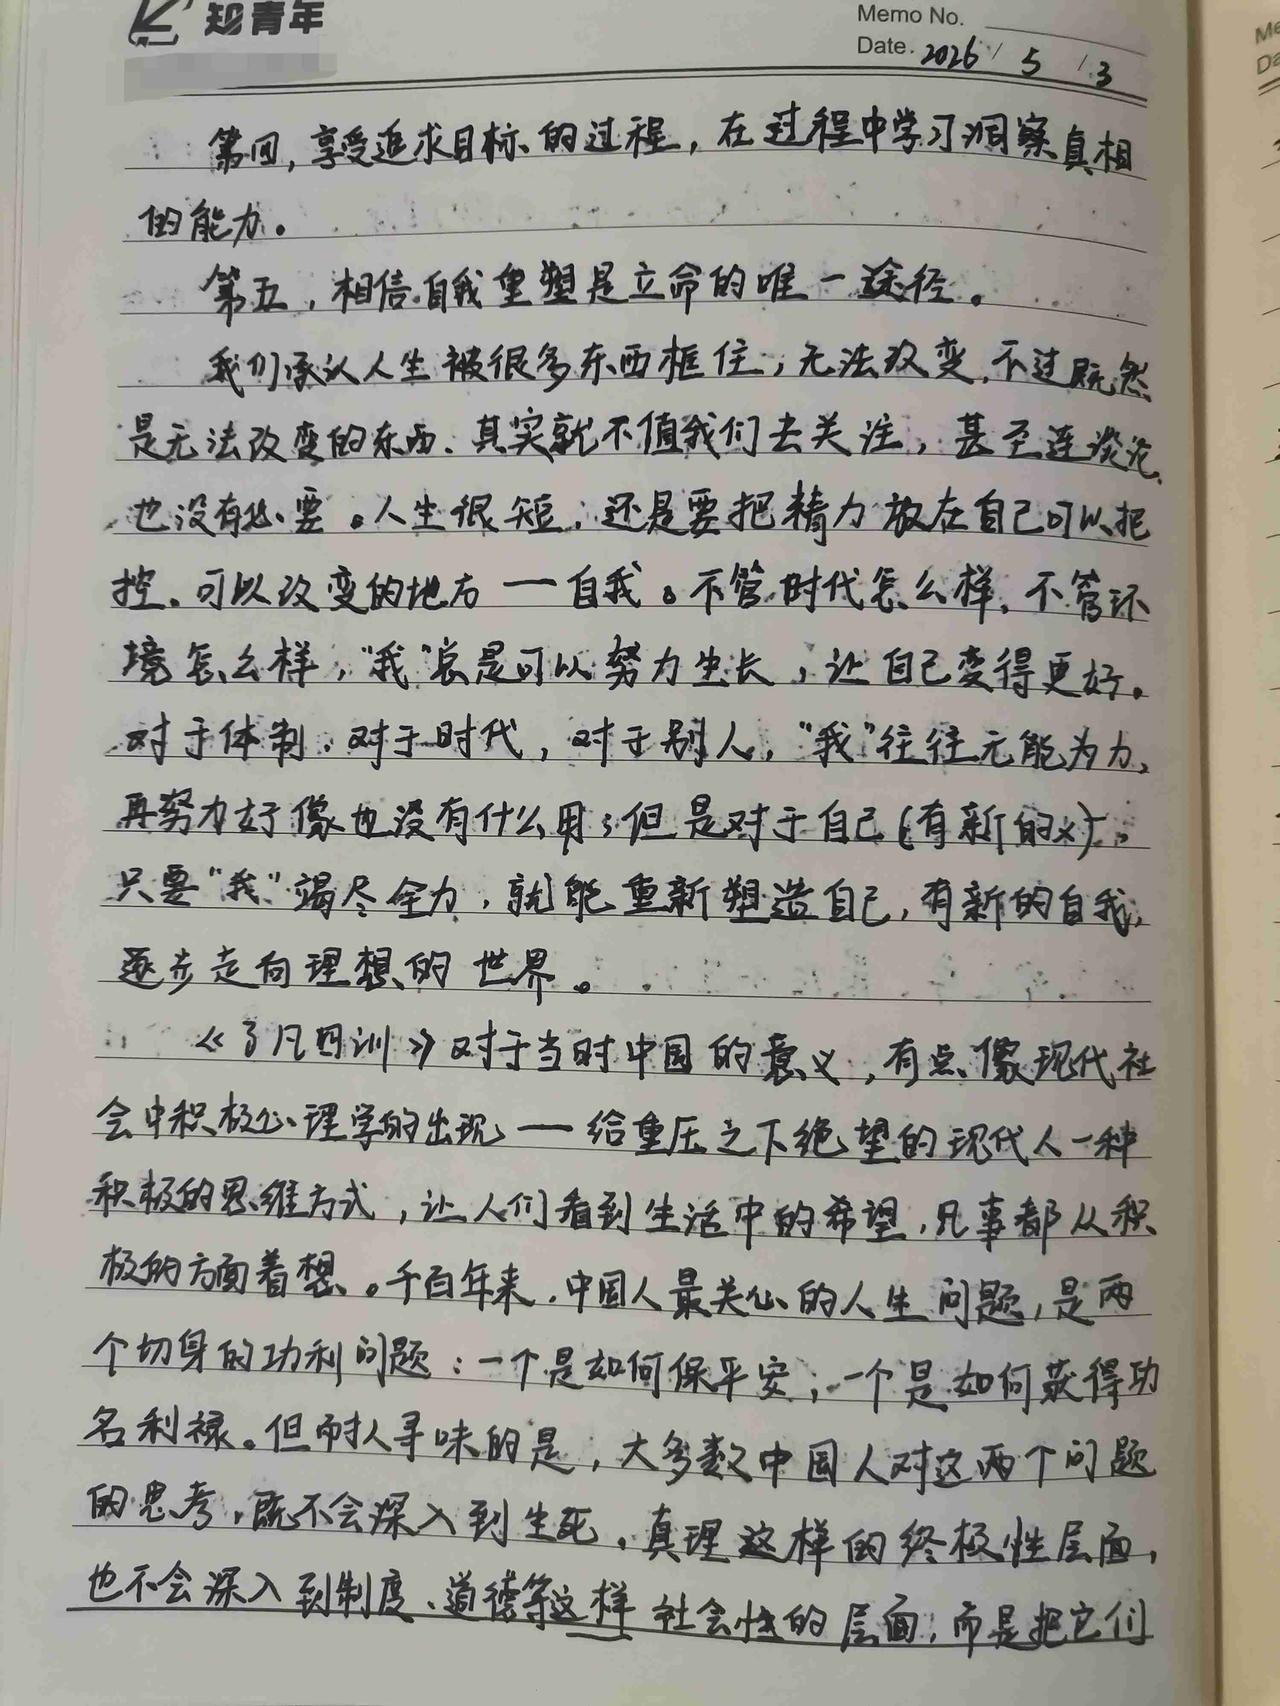 知青年
Memo No.
Date. 2026 / 5 / 3
第四，享受追求目标的过程，在过程中学习洞察真相
的能力。
第五，相信自我重塑是立命的唯一途径。
我们承认人生被很多东西框住，无法改变，不过既然
是无法改变的东西、其实就不值我们去关注，甚至连谈论
也没有必要。人生很短，还是要把精力放在自己可以把
控、可以改变的地方——自我。不管时代怎么样，不管环
境怎么样，"我"总是可以努力生长，让自己变得更好。
对于体制、对于时代，对于别人，"我"往往无能为力，
再努力好像也没有什么用；但是对于自己(有新的
只要"我"竭尽全力，就能重新塑造自己，有新的自我，
逐步走向理想的世界。
《了凡四训》对于当时中国的意义，有点像现代社
会中积极心理学的出现——给重压之下绝望的现代人一种
积极的思维方式，让人们看到生活中的希望，凡事都从积
极的方面着想。千百年来，中国人最关心的人生问题，是两
个切身的功利问题：一个是如何保平安，一个是如何获得功
名利禄。但耐人寻味的是，大多数中国人对这两个问题
的思考，既不会深入到生死、真理这样的终极性层面，
也不会深入到制度、道德等这样社会性的层面，而是把它们